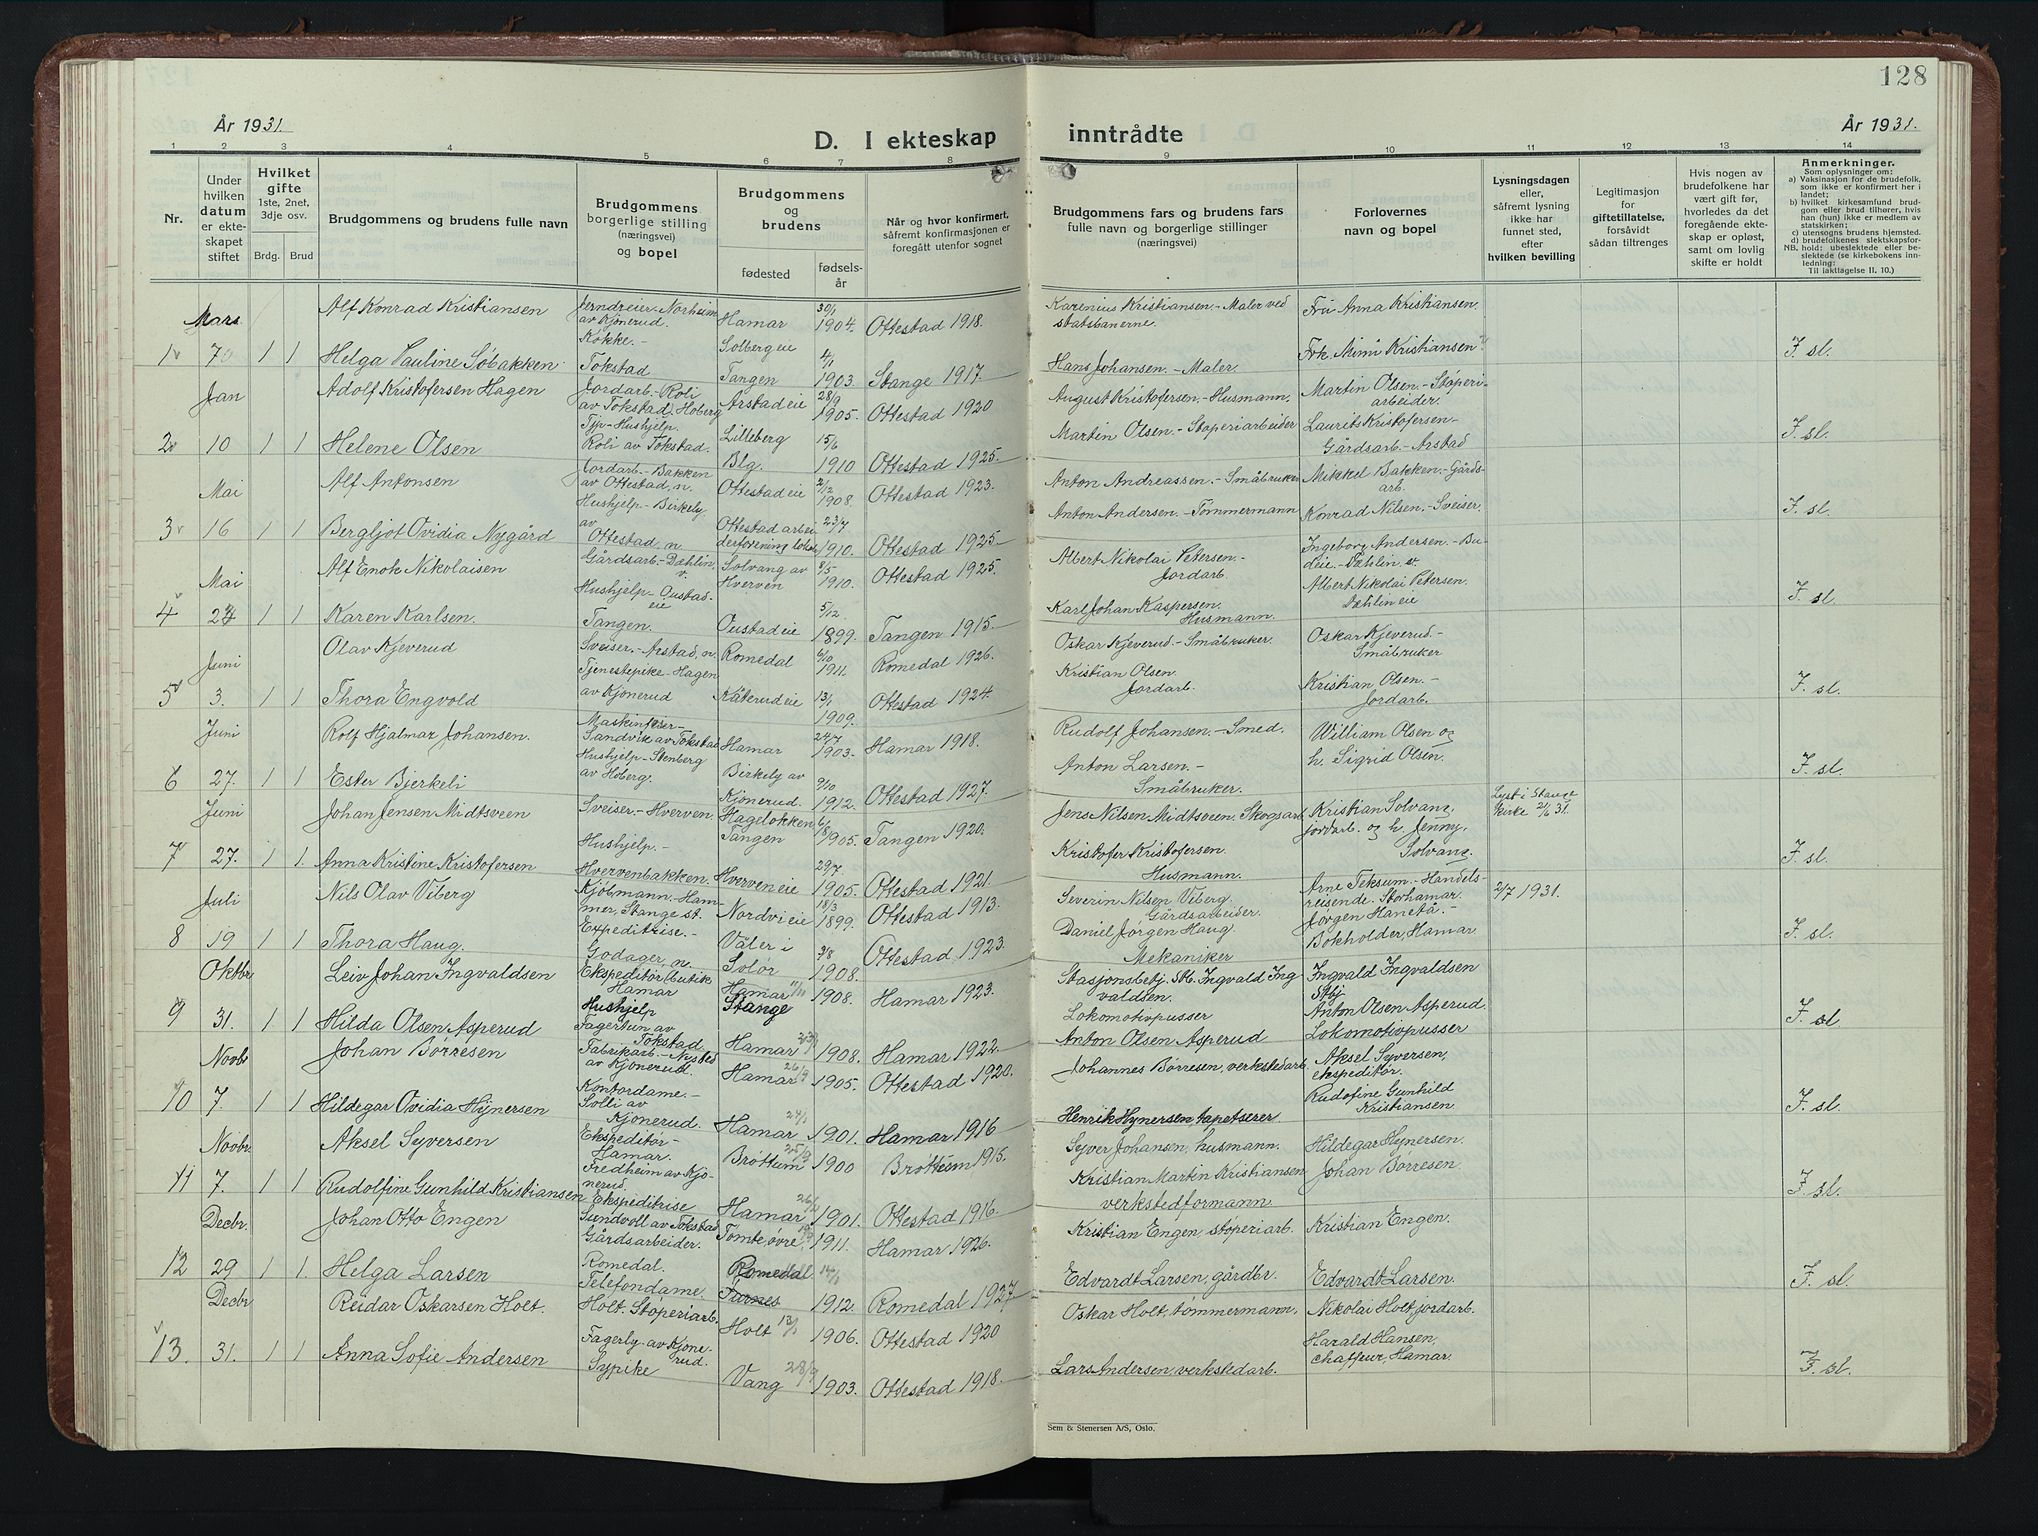 128
År 1931.
D. I ekteskap inntrådte
År 1931.
1 2 3 4 5 6 7 8 9 10 11 12 13 14
Nr.
Under hvilken datum er ekteskapet stiftet
Hvilket gifte 1ste, 2net, 3dje osv.
Brdg. Brud
Brudgommens og brudens fulle navn
Brudgommens borgerlige stilling (næringsvei) og bopel
Brudgommens og brudens
fødested
fødselsår
Når og hvor konfirmert, såfremt konfirmasjonen er foregått utenfor sognet
Brudgommens fars og brudens fars fulle navn og borgerlige stillinger (næringsvei)
Forlovernes navn og bopel
Lysningsdagen eller, såfremt lysning ikke har funnet sted, efter hvilken bevilling
Legitimasjon for giftetillatelse, forsåvidt sådan tiltrenges
Hvis nogen av brudefolkene har vært gift før, hvorledes da det foregående ekteskap er opløst, samt om lovlig skifte er holdt
Anmerkninger.
Som oplysninger om:
a) Vaksinasjon for de brudefolk, som ikke er konfirmert her i landet;
b) hvilket kirkesamfund brudgom eller brud tilhører, hvis han (hun) ikke er medlem av statskirken;
c) utensogns brudens hjemsted.
d) brudefolkenes slektskapsforhold: ubeslektede eller beslektede (se kirkebokens innledning:
NB. Til iakttagelse II. 10.)
Mars
Alf Konrad Kristiansen Jerndreier - Norheim av Kjønerud. Hamar 30/1 1904. Ottestad 1918. Karenius Kristiansen. - Maler ved statsbanerne. Fru Anna Kristiansen.
1 7 1 1 Helga Pauline Søbakken Kokke. - Tokstad Solberg eie Tangen 4/1 1903. Stange 1917. Hans Johansen. - Maler. Frk. Mimi Kristiansen F. sl.
Jan
Adolf Kristofersen Hagen Jordarb. - Roli av Tokstad, Hoberg Arstad eie 28/9 1905. Ottestad 1920 August Kristofersen. - Husmann. Martin Olsen. - Støperiarbeider.
2 10 1 1 Helene Olsen Hushjelp. Roli av Tokstad. Lilleberg Blg. 15/6 1910 Ottestad 1925. Martin Olsen. - Støperiarbeider Laurits Kristofersen - Gårdsarb - Arstad F. sl.
Mai
Alf Antonsen Jordarb. - Bakken av Ottestad, n. Ottestad eie 2/12 1908. Ottestad 1923. Anton Andreassen. - Småbruker Mikkel Bakken. - Gårdsarb.
3 16 1 1 Bergljot Ovidia Nygård Hushjelp - Birkely av Ottestad, n. Ottestad arbeiderforening lokale 23/7 1910. Ottestad 1925 Anton Andersen. - Tømmermann Konrad Nilsen. - Sveiser. F. sl.
Mai
Alf Enok Nikolaisen Gårdsarb. - Dæhlin, v. Solvang av Hverven 8/5 1910. Ottestad 1925. Albert Nikolai Petersen. - Jordarb. Ingeborg Andersen. - Budeie. - Dæhlin v.
4 24 1 1 Karen Karlsen. Hushjelp - Oustadeie Tangen. Oustad eie 5/12 1899. Tangen 1915. Karl Johan Kaspersen. Husmann. Albert Nikolai Petersen. Dæhlin eie F. sl.
Juni
Olav Kjeverud Sveiser. - Arstad, n. Romedal 6/10 1911. Romedal 1926. Oskar Kjeverud. - Småbruker. Oskar Kjeverud. - Småbruker
5 3. 1 1 Thora Engvold Tjenestepike - Hagen av Kjønerud Kåterud eie 13/1 1909. Ottestad 1924. Kristian Olsen Jordarb. Kristian Olsen. - Jordarb. F. sl.
Juni
Rolf Hjalmar Johansen. Sandvik av Tokstad Hamar 24/7 1903. Hamar 1918. Rudolf Johansen. - Smed. William Olsen og
6 27. 1 1 Ester Bjerkeli Hushjelp - Stenberg av Hoberg. Birkely av Kjønerud. 9/10 1912. Ottestad 1927. Anton Larsen. - Småbruker. h. Sigrid Olsen. F. sl.
Juni
Johan Jensen Midtsveen Sveiser. - Hverven. Hageløkken Tangen 6/8 1905. Tangen 1920. Jens Nilsen Midtsveen. Skogsarb. Kristian Solvang, jordarb. og h. Jenny, Solvang. Lyst i Stange kirke 21/6 31.
7 27. 1 1. Anna Kristine Kristofersen Hushjelp. - Hvervenbakken. Hverven eie 29/7 1905. Ottestad 1921. Kristofer Kristofersen. Husmann. F. sl.
Juli
Nils Olav Viberg Kjøbmann. Hammer, Stange st. Nordvi eie 18/3 1899. Ottestad 1913. Severin Nilsen Viberg. Gårdsarbeider. Arne Teksum. - Handelsreisende. Storhamar. 2/7 1931.
8 19 1 1 Thora Haug. Expeditrise. - Godager, n. Våler i Solør 3/8 1908. Ottestad 1923. Daniel Jørgen Haug. Mekaniker Jørgen Hanetå. - Bokholder, Hamar F. sl.
Oktbr
Leiv Johan Ingvaldsen Ekspeditør, butik Hamar Hamar 11/11 1908. Hamar 1923. Stasjonsbetj. Stb. Ingvald Ingvaldsen. Ingvald Ingvaldsen Stbj
9 31. 1 1 Hilda Olsen Asperud Hushjelp Fagertun av Tokstad Stange Hamar 1908. Hamar 1922. Lokomotivpusser Anton Olsen Asperud Anton Olsen Asperud. Lokomotivpusser F. sl.
Novbr
Johan Børresen Fabrikarb. - Nysted av Kjønerud. Hamar 26/9 1905. Ottestad 1920. Johannes Børresen, verkstedarb. Aksel Syversen, ekspeditør.
10 7. 1 1 Hildegar Ovidia Hynersen Kontordame. - Solli av Kjønerud. Hamar 24/1 1901. Hamar 1916 Henrik Hynersen tapetserer Rudofine Gunhild Kristiansen F. sl.
Novbr.
Aksel Syversen Ekspeditør - Hamar. Brøttum 25/9 1900 Brøttum 1915. Syver Johansen, husmann. Hildegar Hynersen.
11 7. 1 1 Rudolfine Gunhild Kristiansen Fredheim av Kjønerud. Ekspeditrise Hamar 1901. Ottestad 1916. Kristian Martin Kristiansen verkstedformann Johan Børresen F. sl.
Decbr.
Johan Otto Engen Sundvoll av Tokstad Gårdsarbeider. Tomte, øvre 1911. Hamar 1926. Kristian Engen, støperiarb. Kristian Engen.
12 29 1 1. Helga Larsen Romedal. Telefondame. Romedal Furnes 14/1 1912. Romedal 1927 Edvardt Larsen, gårdbr. Edvardt Larsen. F. sl.
Decbr
Reidar Oskarsen Holt. Holt. Støperiarb. Holt 1906. Ottestad 1920 Oskar Holt, tømmermann. Nikolai Holt jordarb.
13. 31. 1 1 Anna Sofie Andersen Fagerly av Kjønerud. Sypike Vang 1903. Ottestad 1918. Lars Andersen, verkstedarb. Harald Hansen, chaffeur, Hamar. F. sl.
Sem & Stenersen A/S, Oslo.